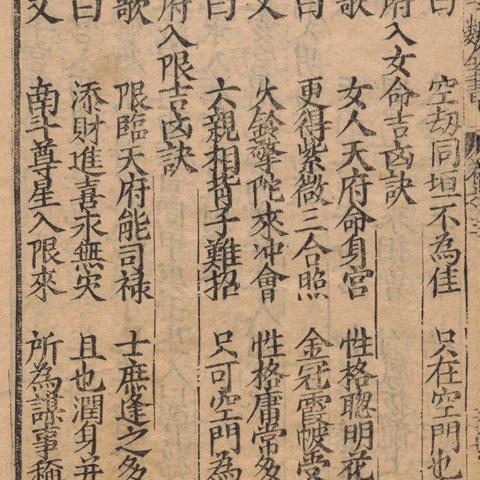 曰
空劫同垣不為佳 只在空門也
府入女命吉凶訣
歌 女人天府命身宮 性格聰明花
曰 更得紫微三合照 金冠霞帔受
又 火鈴擎陀來冲會 性格庸常多
曰 六親相背子難招 只可空門為
府入限吉凶訣
歌 限臨天府能司禄 士庶逢之多
曰 添財進喜永無灾 且也潤身并
又 南斗尊星入限來 所為謀事稱